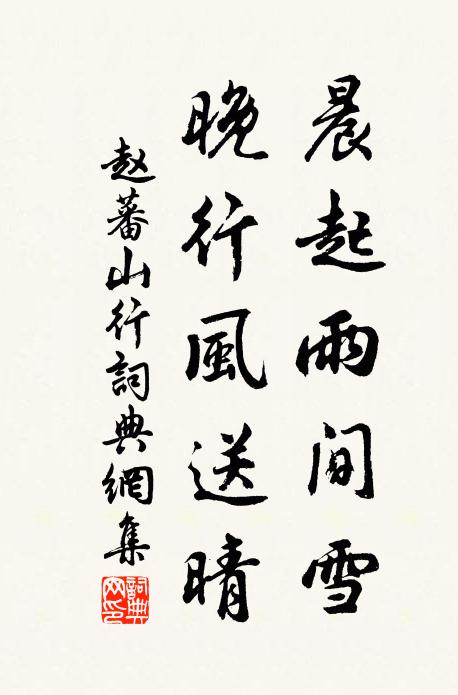 晨起雨间雪
晚行風送晴
赵蕃山行詞典網集
詞典網印